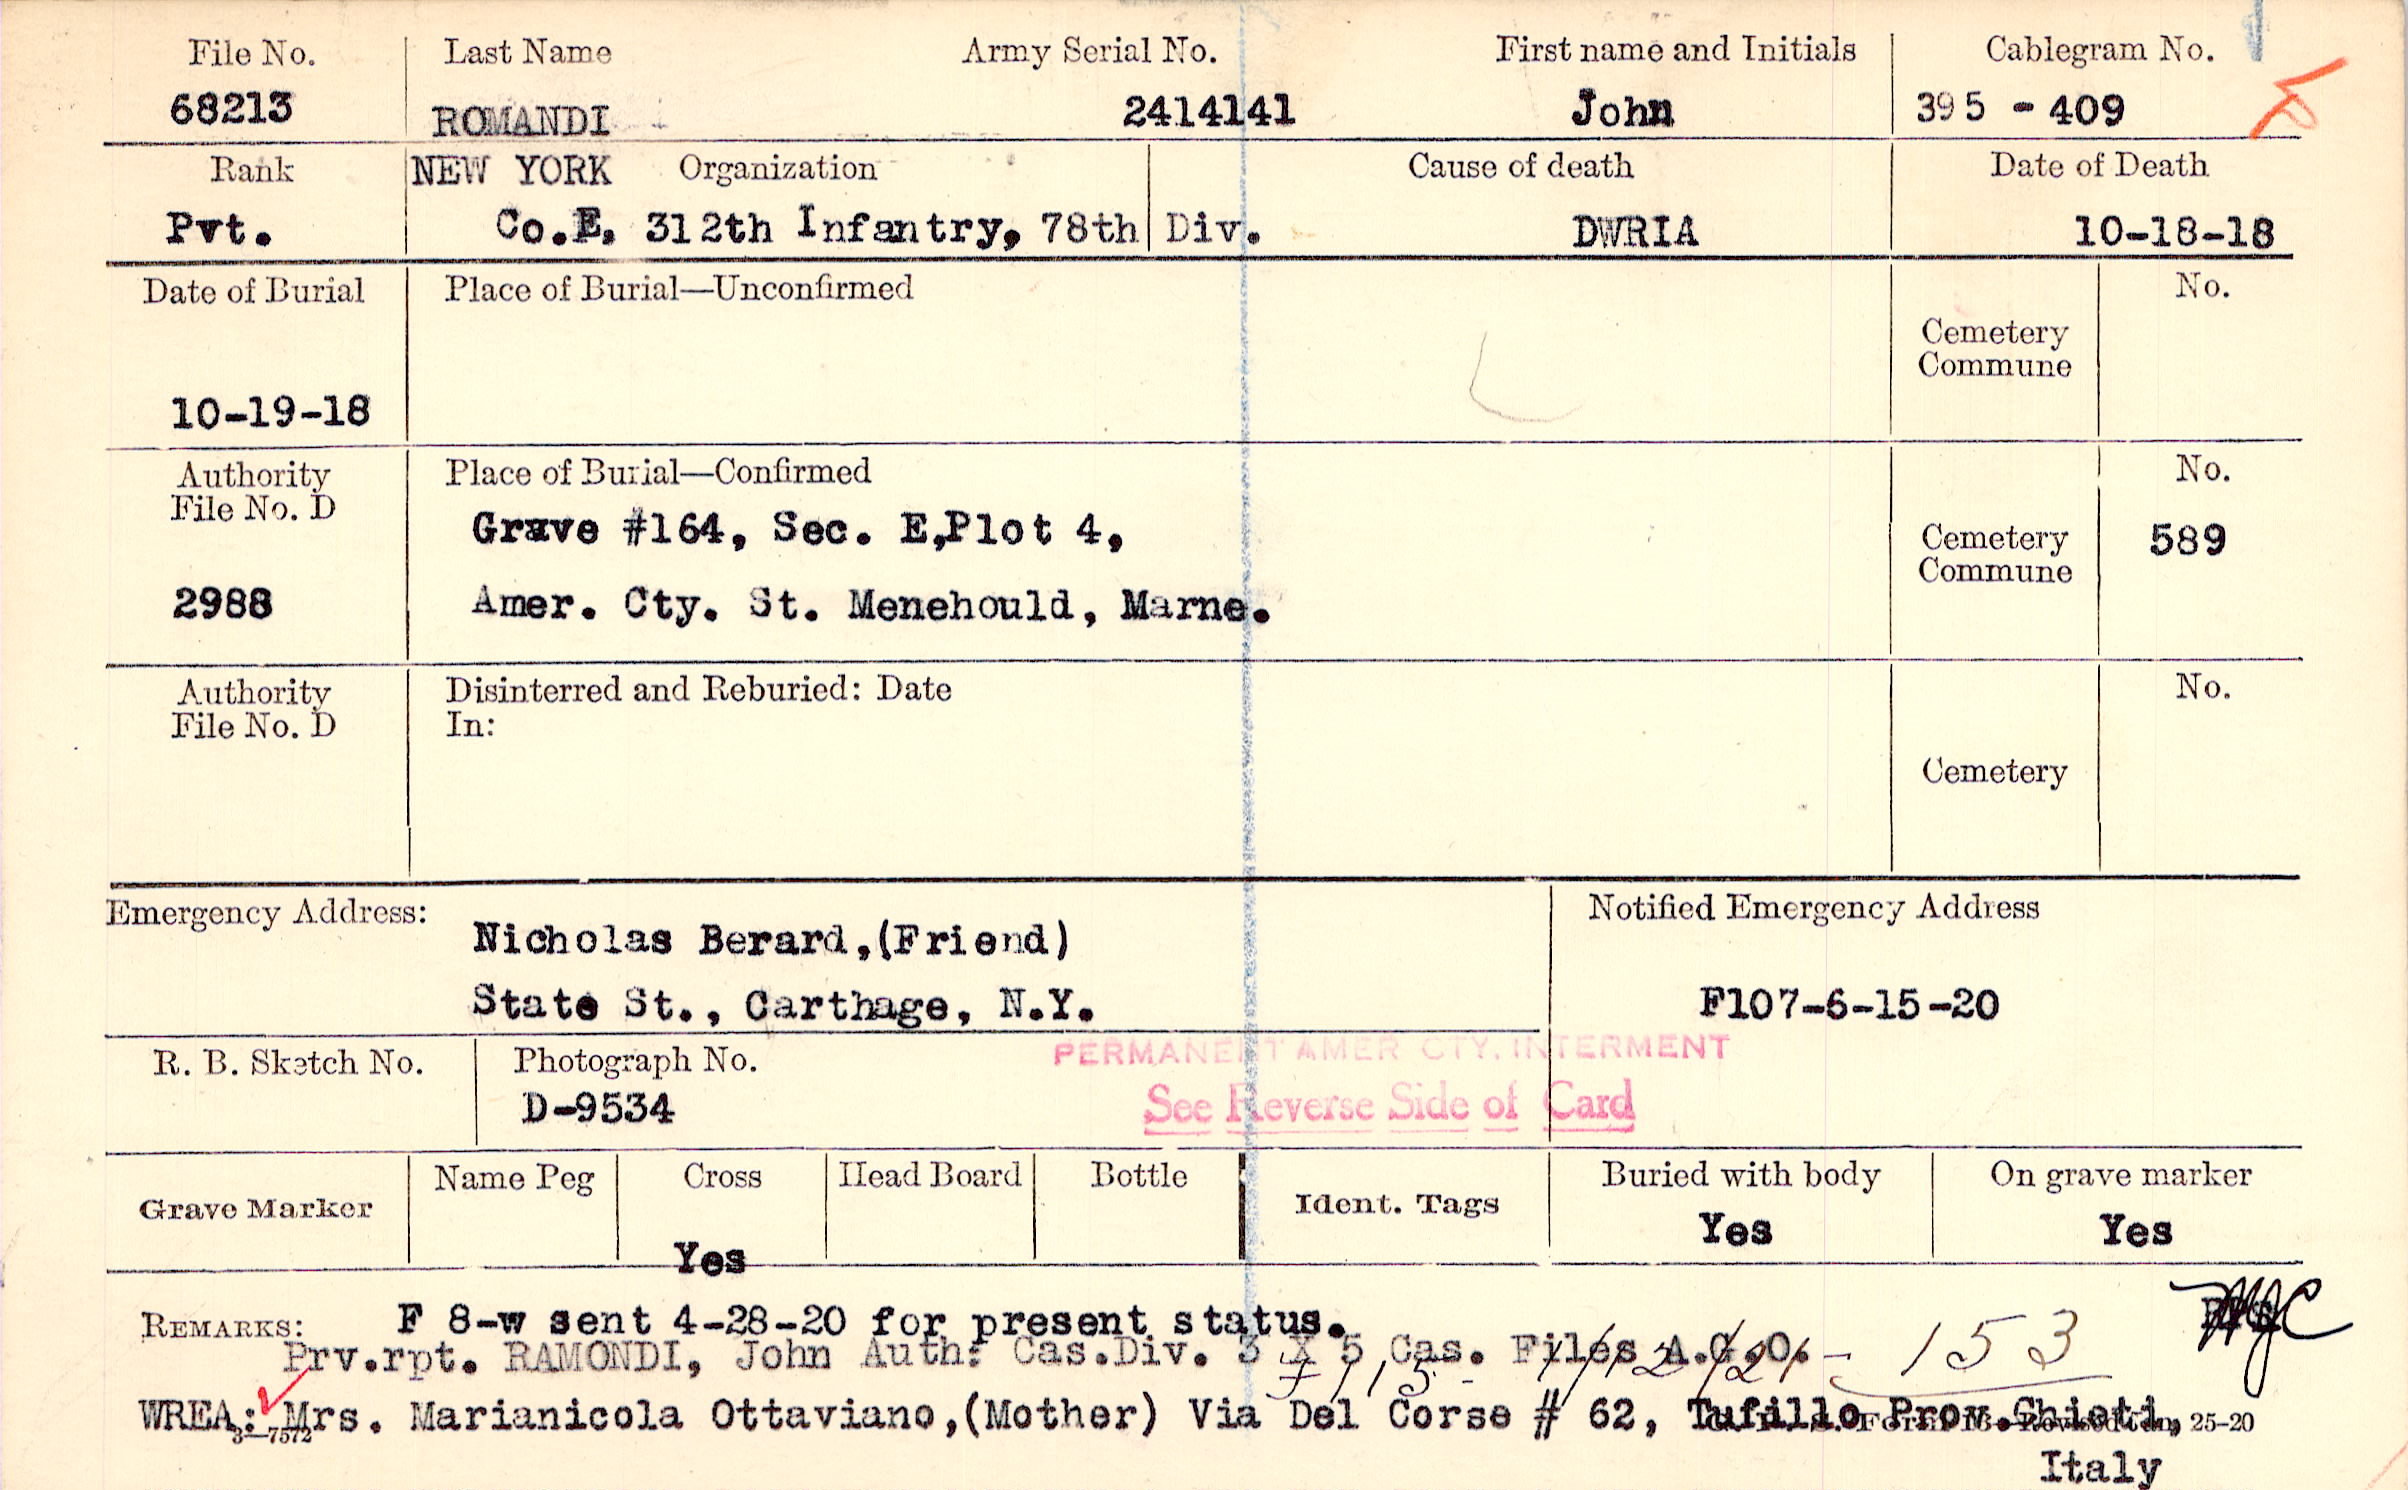 File No. Last Name Army Serial No. First name and Initials Cablegram No.
68213 ROMANDI 2414141 John 395 - 409
Rank NEW YORK Organization Cause of death Date of Death
Pvt. Co.E, 312th Infantry, 78th Div. DWRIA 10-18-18
Date of Burial Place of Burial—Unconfirmed No.
Cemetery
Commune
10-19-18
Authority Place of Burial—Confirmed No.
File No. D
Grave #164, Sec. E,Plot 4, Cemetery 589
Commune
2988 Amer. Cty. St. Menehould, Marne.
Authority Disinterred and Reburied: Date No.
File No. D In:
Cemetery
Emergency Address: Notified Emergency Address
Nicholas Berard,(Friend)
State St., Carthage, N.Y. F107-6-15-20
PERMANENT AMER CTY. INTERMENT
R. B. Sketch No. Photograph No.
D-9534 See Reverse Side of Card
Grave Marker Name Peg Cross Head Board Bottle Ident. Tags Buried with body On grave marker
Yes Yes
Yes
REMARKS: F 8-w sent 4-28-20 for present status.
Prv.rpt. RAMONDI, John Auth: Cas.Div. 3 X 5 Cas. Files A.G.O. - 153
WREA: Mrs. Marianicola Ottaviano,(Mother) Via Del Corse # 62, Tufillo Prov.Chieti,
3—7572 25-20
Italy